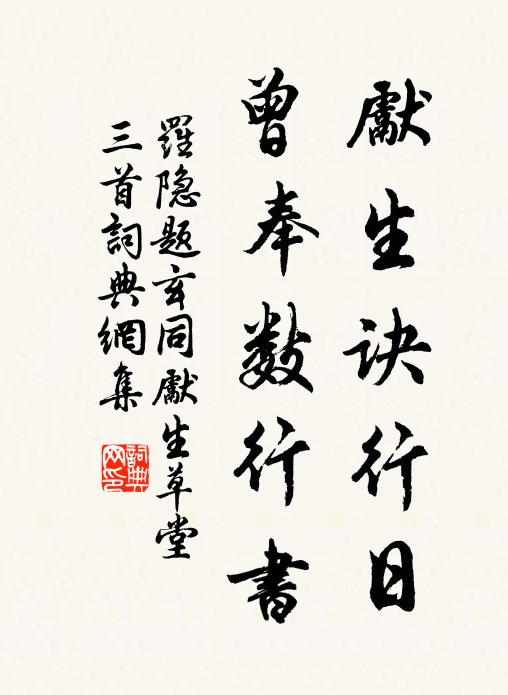 獻生訣行日
曾奉數行書
羅隐题玄同獻生草堂
三首詞典網集
詞典网印